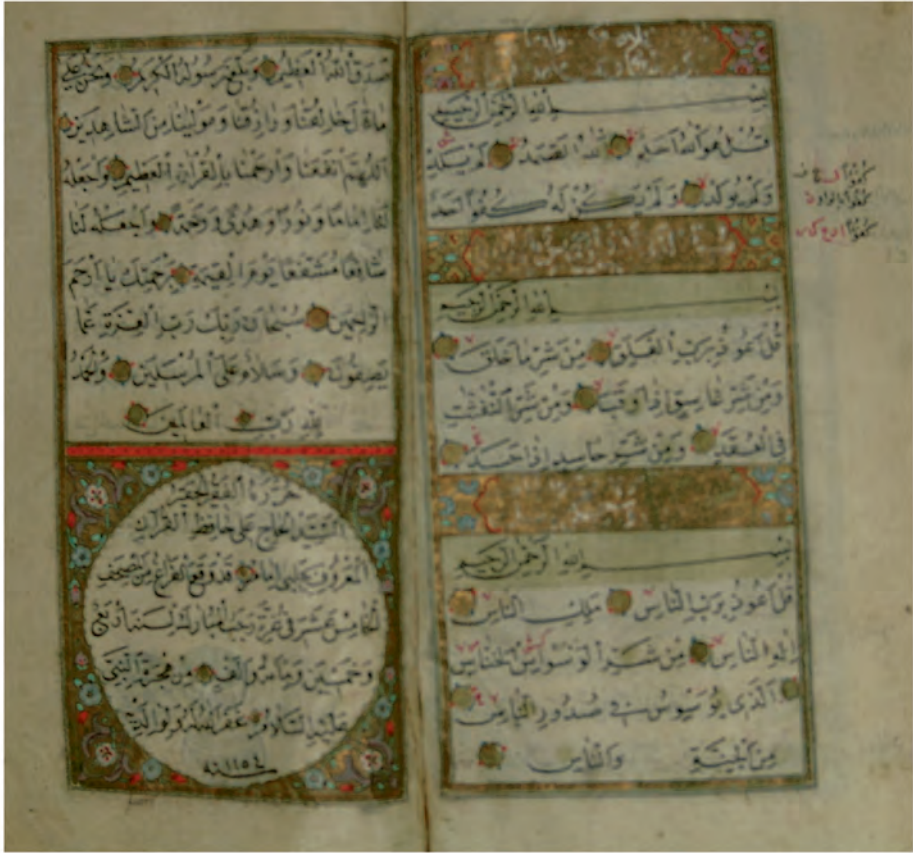 بسم الله الرحمن الرحيم
قل هو الله احد الله الصمد لم يلد
ولم يولد ولم يكن له كفوا احد
بسم الله الرحمن الرحيم
قل اعوذ برب الفلق من شر ما خلق
ومن شر غاسق اذا وقب ومن شر النفثت
في العقد ومن شر حاسد اذا حسد
بسم الله الرحمن الرحيم
قل اعوذ برب الناس ملك الناس
اله الناس من شر الوسواس الخناس
الذي يوسوس في صدور الناس
من الجنة والناس
صدق الله العظيم وبلغ رسوله الكريم ونحن على
ما قال خالقنا ورازقنا ومولينا من الشاهدين
اللهم انفعنا وارحمنا بالقران العظيم واجعله
لنا اماما ونورا وهدى ورحمة واجعله لنا
شافعا مشفعا يوم القيمة برحمتك يا ارحم
الراحمين سبحان ربك رب العزة عما
يصفون وسلام على المرسلين والحمد
لله رب العالمين
حرره الفقير الحقير
السيد الحاج علي حافظ القران
المعروف امام قد وقع الفراغ من مصحف
الخامس عشر في غرة رجب المبارك لسنة اربع
وخمسين ومائة والف من هجرة النبي
عليه السلام غفر الله له ولوالديه
سنه ١١٥٤